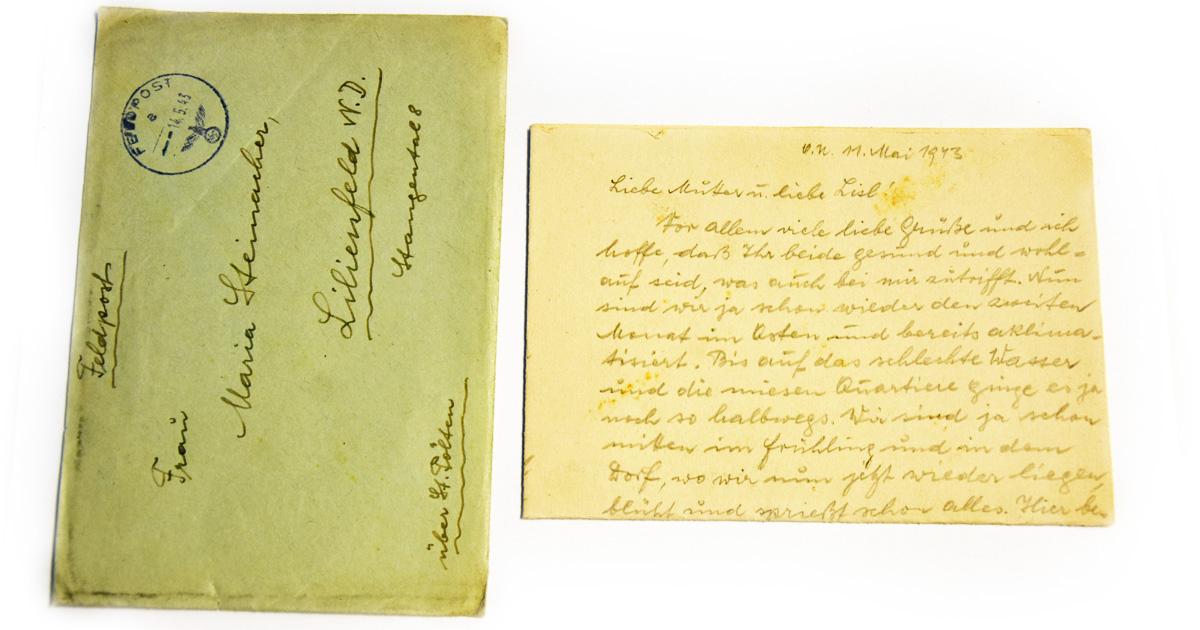 FELDPOST
a
14.5.43
Feldpost
Frau
Maria Steinacher,
Lilienfeld N.D.
Stangental 8
über St. Pölten
O.U. 11. Mai 1943
Liebe Mutter u. liebe Lisl!
Vor allem viele liebe Grüße und ich
hoffe, daß Ihr beide gesund und wohl=
auf seid, was auch bei mir zutrifft. Nun
sind wir ja schon wieder den zweiten
Monat im Osten und bereits aklima-
tisiert. Bis auf das schlechte Wasser
und die miesen Quartiere ginge es ja
noch so halbwegs. Wir sind ja schon
mitten im Frühling und in dem
Dorf, wo wir nun jetzt wieder liegen,
blüht und sprießt schon alles. Hier be-